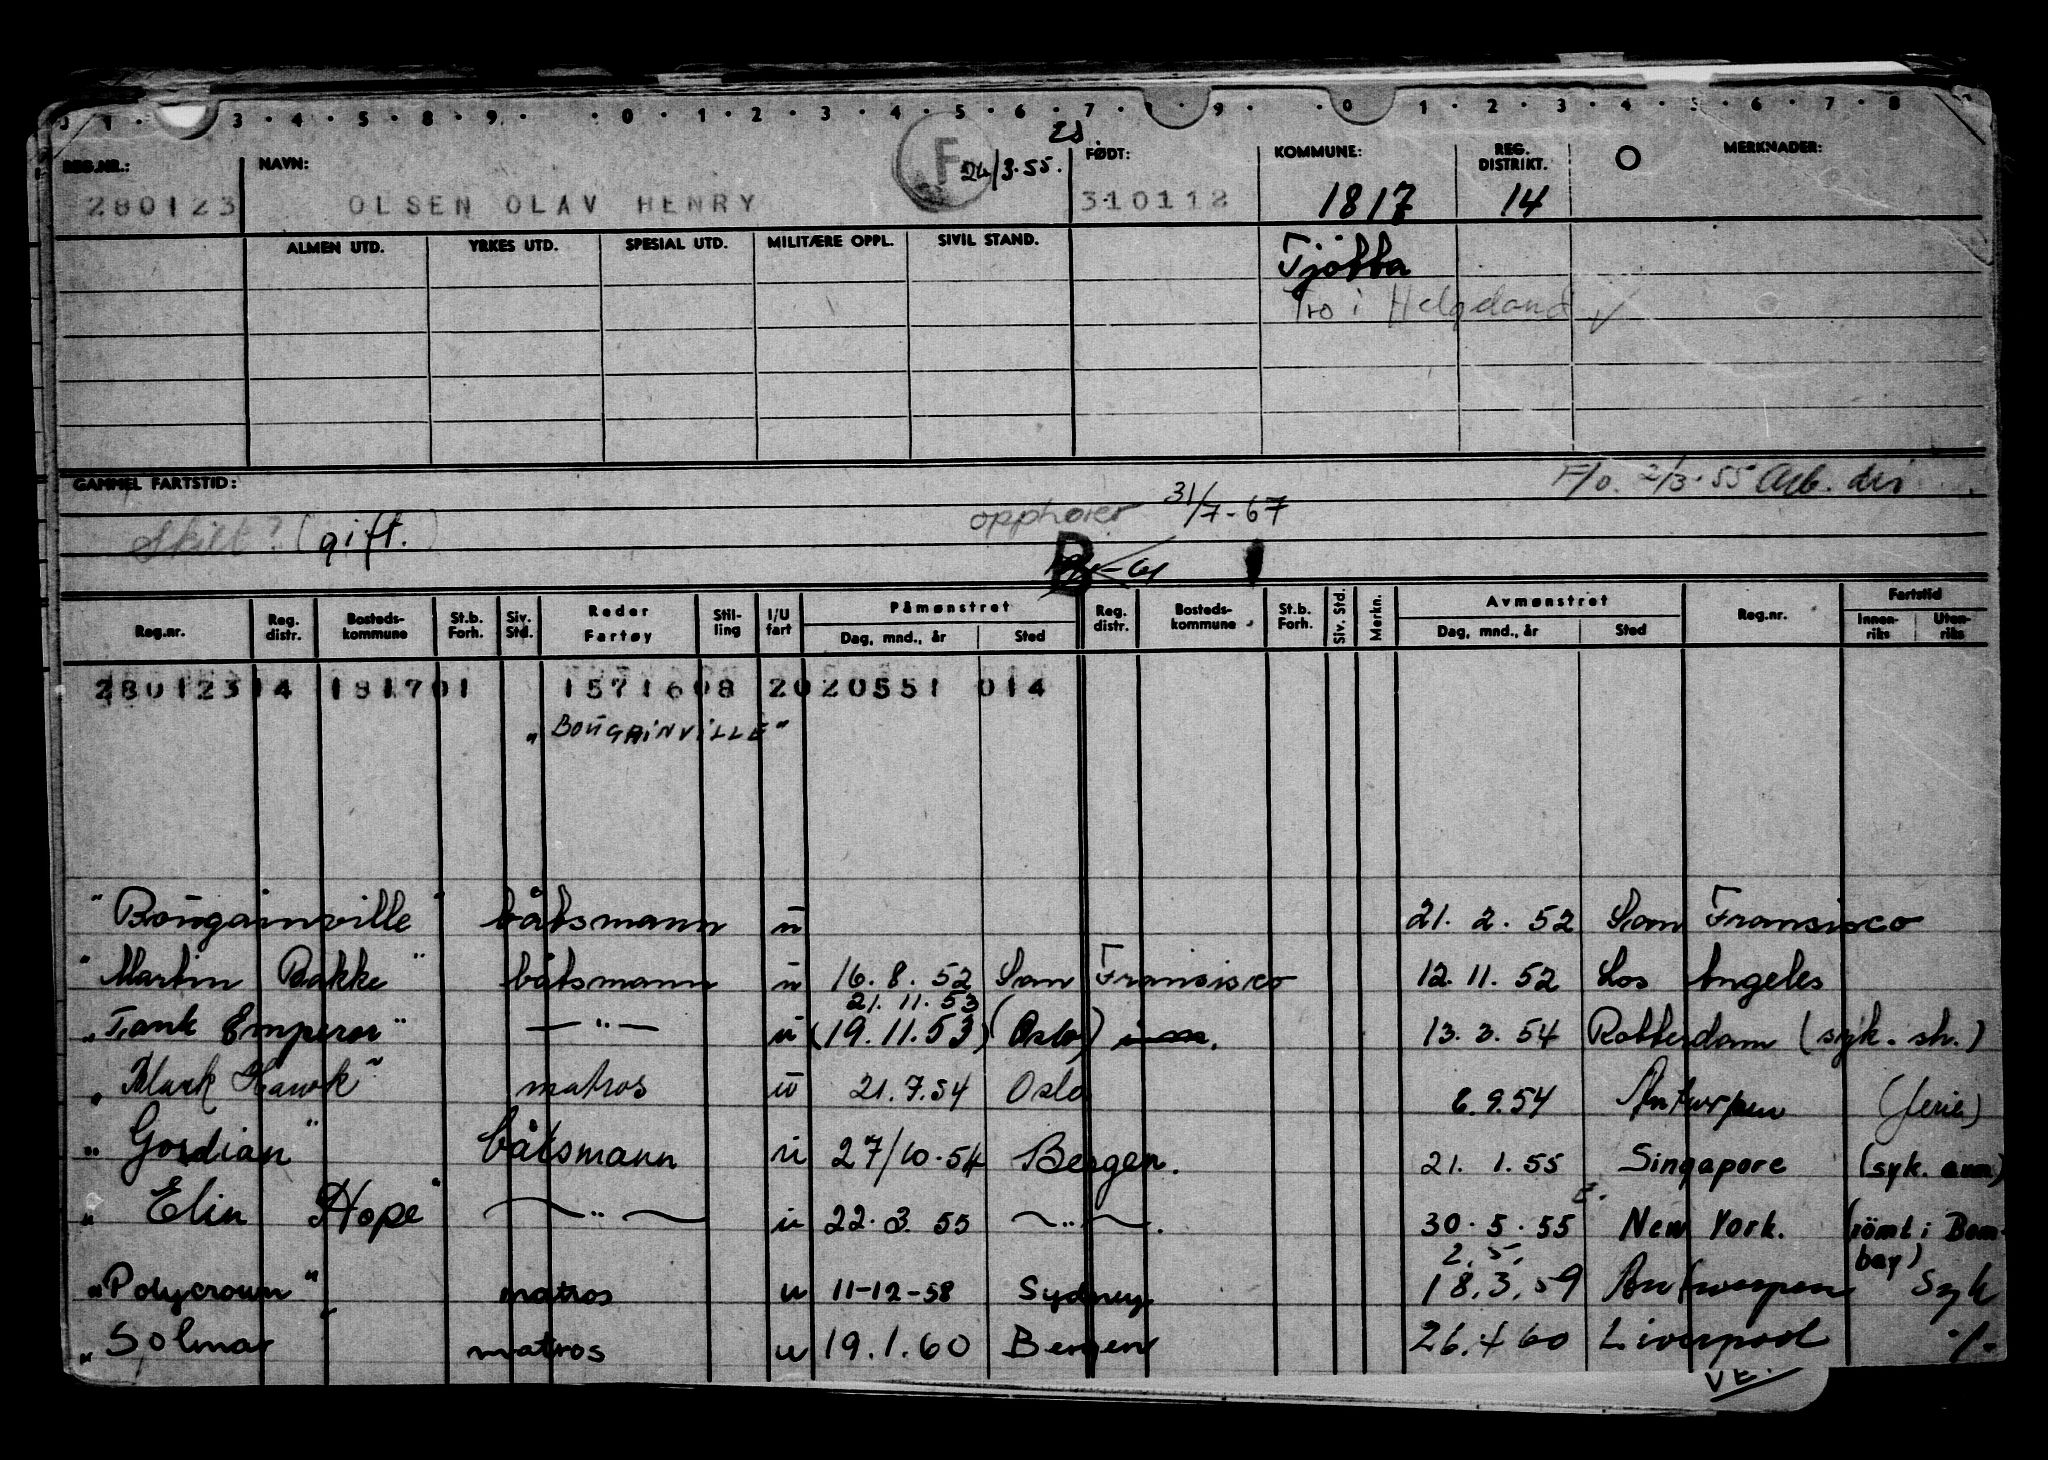 0 1 · 3 · 4 · 5 · 8 · 9 · · 0 · 1 · 2 · 3 · 4 · 5 · 6 · 7 · 8 · 9 · · 0 1 · 2 · 3 · 4 · 5 · 6 · 7 · 8
REG.NR.: NAVN: F 24/3·55. FØDT: KOMMUNE: REG. DISTRIKT. MERKNADER:
280123 OLSEN OLAV HENRY 310112 1817 14
ALMEN UTD. YRKES UTD. SPESIAL UTD. MILITÆRE OPPL. SIVIL STAND. Tjøtta
Tro i Helgeland
GAMMEL FARTSTID: F/o. 2/3·55 Arb. dir
Skilt? (gift.) opphører 31/7-67
B
Reg.nr. Reg. distr. Bosteds-kommune St.b. Forh. Siv. Std. Reder Fartøy Stil-ling I/U fart Påmønstret Dag, mnd., år Sted Reg. distr. Bosteds-kommune St.b. Forh. Siv. Std. Merkn. Avmønstret Dag, mnd., år Sted Reg.nr. Fartstid Innen-riks Uten-riks
280123 14 181701 1571608 2020551 014
"BOUGAINVILLE"
"Bougainville" båtsmann u 21. 2. 52 San Fransisco
"Martin Bakke" båtsmann u 16. 8. 52 San Fransisco 12. 11. 52 Los Angeles
21. 11. 53
"Tank Emperor" — " — u (19. 11. 53) (Oslo) 13. 3. 54 Rotterdam (syk. sh.)
"Black Hawk" matros u 21. 7. 54 Oslo 8. 9. 54 Antwerpen (ferie)
"Gordian" båtsmann u 27/10·54 Bergen. 21. 1. 55 Singapore (syk. ann)
"Elin Hope" — " — u 22·3 55 — " —. 30·5·55 New York. (römt i Bom-
2. 5. bay)
"Polycrown" matros u 11-12-58 Sydney 18. 3. 59 Antwerpen Syk
"Solmar" matros u 19. 1. 60 Bergen 26. 4 60 Liverpool ·/.
VE.